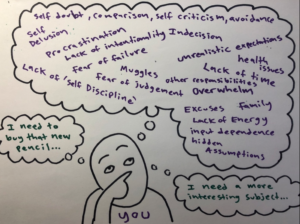 Self doubt, comparison, self criticism, avoidance
Self Delusion
Lack of intentionality Indecision
Procrastination
unrealistic expectations
Fear of failure
health issues
Muggles
Lack of time
Lack of 'Self Discipline'
Fear of judgement
other responsibilities
Overwhelm
Excuses
Family
Lack of Energy
input dependence
hidden Assumptions
I need to
buy that new
pencil...
I need a more
interesting subject...
you